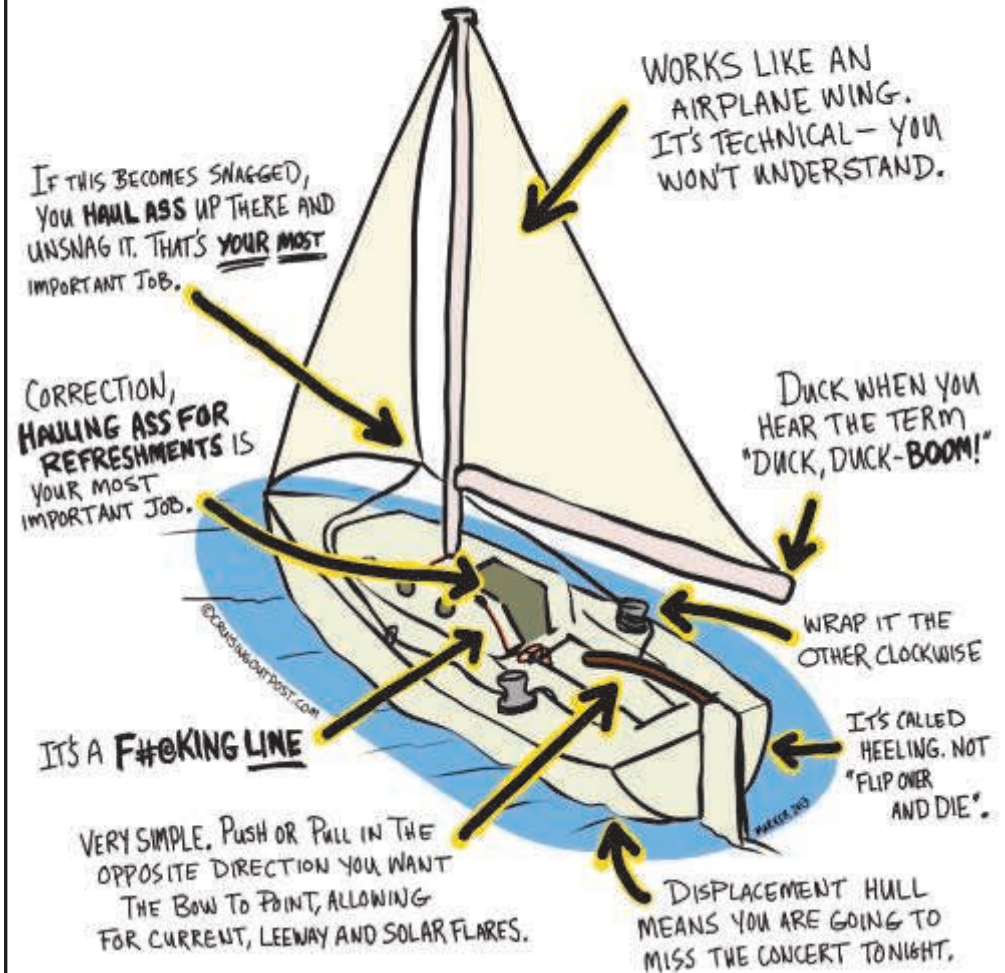 WORKS LIKE AN
AIRPLANE WING.
IT'S TECHNICAL - YOU
WON'T UNDERSTAND.
IF THIS BECOMES SNAGGED,
YOU HAUL ASS UP THERE AND
UNSNAG IT. THAT'S YOUR MOST
IMPORTANT JOB.
CORRECTION,
HAULING ASS FOR
REFRESHMENTS IS
YOUR MOST
IMPORTANT JOB.
DUCK WHEN YOU
HEAR THE TERM
"DUCK, DUCK-BOOM!"
WRAP IT THE
OTHER CLOCKWISE
©CRUISINGOUTPOST.COM
IT'S A F#@KING LINE
IT'S CALLED
HEELING. NOT
"FLIP OVER
AND DIE".
MARKER 2013
VERY SIMPLE. PUSH OR PULL IN THE
OPPOSITE DIRECTION YOU WANT
THE BOW TO POINT, ALLOWING
FOR CURRENT, LEEWAY AND SOLAR FLARES.
DISPLACEMENT HULL
MEANS YOU ARE GOING TO
MISS THE CONCERT TONIGHT.